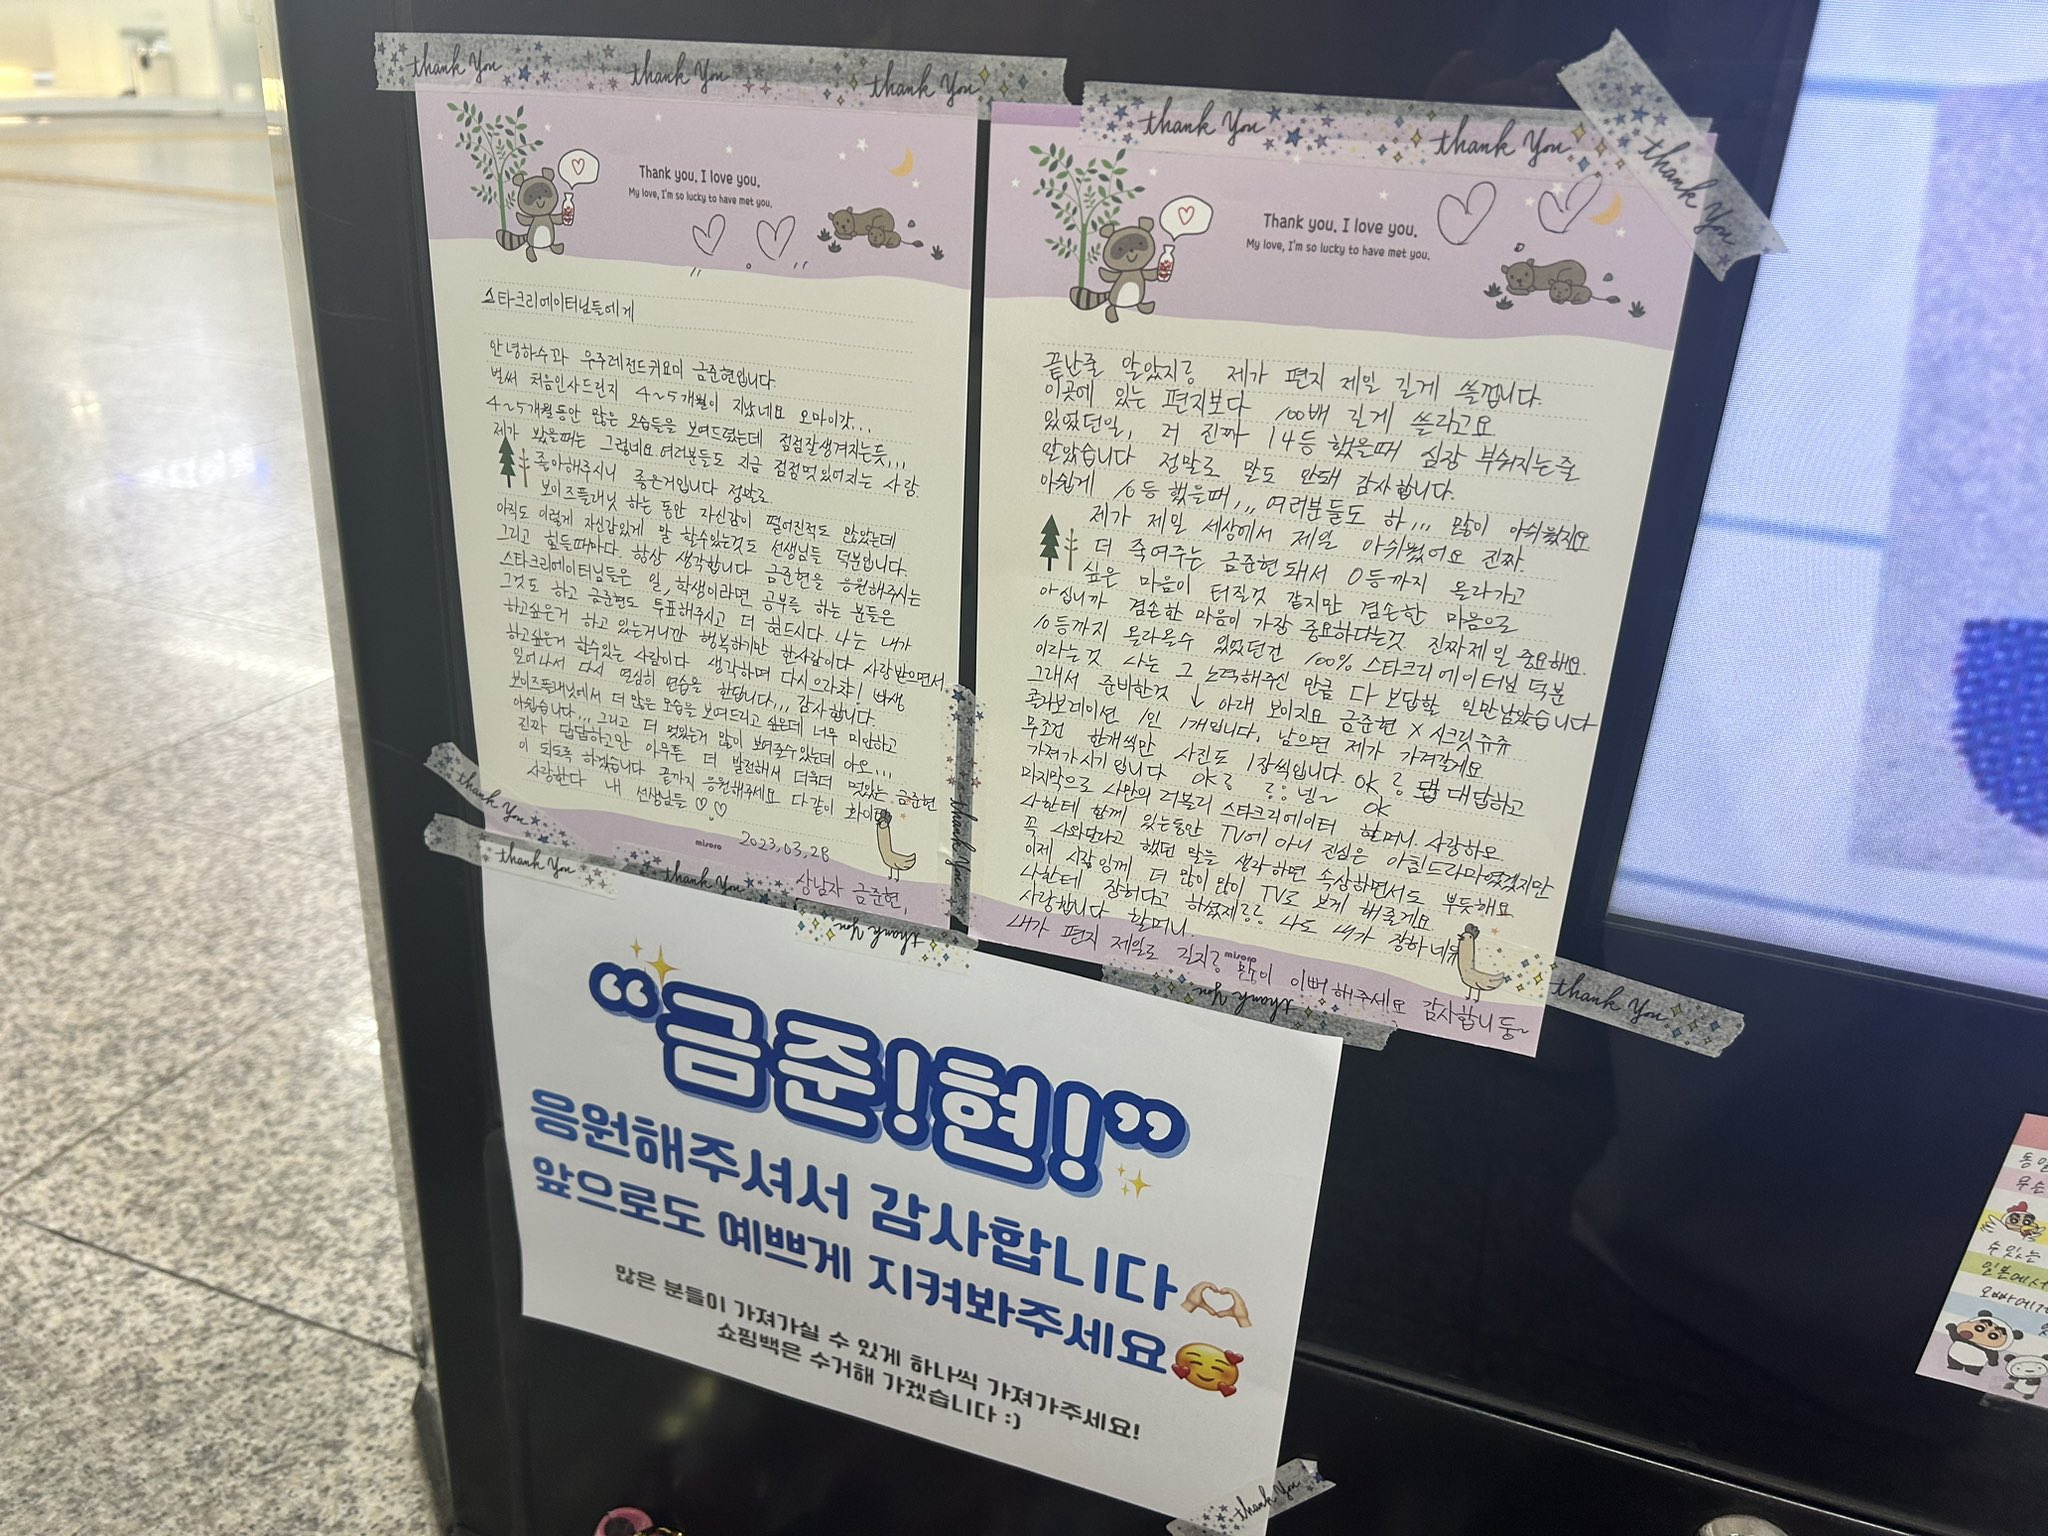 thank you thank you thank you
Thank you. I love you.
My love, I'm so lucky to have met you.
스타크리에이터님들에게
안녕하수과 우주레전드귀요미 금준현입니다
벌써 처음인사드린지 4~5개월이 지났네요 오마이갓...
4~5개월동안 많은 모습들을 보여드렸는데 점점잘생겨지는듯,,,
제가 봤을때는 그렇네요 여러분들도 지금 점점멋있어지는 사람
좋아해주시니 좋은거입니다 정말로
보이즈플래닛 하는 동안 자신감이 떨어진적도 많았는데
아직도 이렇게 자신감있게 말 할수있는것도 선생님들 덕분입니다.
그리고 힘들때마다. 항상 생각합니다 금준현을 응원해주시는
스타크리에이터님들은 일, 학생이라면 공부를 하는 분들은
그것도 하고 금준현도 투표해주시고 더 힘드시다. 나는 내가
하고싶은거 하고 있는거니깐 행복하기만 한사람이다 사랑받으면서
하고싶은거 할수있는 사람이다 생각하며 다시으라챠!
일어나서 다시 열심히 연습을 한답니다,,, 감사합니다
보이즈플래닛에서 더 많은 모습을 보여드리고 싶은데 너무 미안하고
아쉽습니다,,, 그리고 더 멋있는거 많이 보여줄수있는데 아오,,,
진짜 답답하고만 아무튼 더 발전해서 더욱더 멋있는 금준현
이 되도록 하겠습니다 끝까지 응원해주세요 다같이 화이팅
사랑한다 내 선생님들 ♡♡
misoro
2023,03,28
상남자 금준현,
thank You thank You thank You
Thank you. I love you.
My love, I'm so lucky to have met you.
끝난줄 알았지롱 제가 편지 제일 길게 쓸껍니다.
이곳에 있는 편지보다 100배 길게 쓸라고요
있었던일, 저 진짜 14등 했을때 심장 부숴지는줄
알았습니다 정말로 말도 안돼 감사합니다.
아쉽게 10등 했을때,,, 여러분들도 하,,, 많이 아쉬웠지요
제가 제일 세상에서 제일 아쉬웠어요 진짜
더 죽여주는 금준현 돼서 0등까지 올라가고
싶은 마음이 터질것 같지만 겸손한 마음으로
아십니까 겸손한 마음이 가장 중요하다는것. 진짜제일 중요해요
10등까지 올라올수 있었던건 100% 스타크리에이터님 덕분
이라는것 나는 그 노력해주신 만큼 다 보답할 일만남았습니다
그래서 준비한것 ↓ 아래 보이지요 금준현 X 시크릿쥬쥬
콜라보레이션 1인 1개입니다. 남으면 제가 가져갈게요
무조건 한개씩만 사진도 1장씩입니다. OK 대답하고
가져가시기입니다 넹~ OK
마지막으로 나만의 러블리 스타크리에이터 할머니. 사랑하오
나한테 함께 있는동안 TV에 아니 진심은 아침드라마였겠지만
꼭 나와달라고 했던 말을 생각하면 속상하면서도 뿌듯해요
이제 시장님께 더 많이많이 TV로 보게 해줄게요
나한테 장허다고 하셨제 나도 내가 장하네유
사랑합니다 할머니.
misoro
내가 편지 제일로 길지롱 많이 이뻐해주세요 감사합니둥~
thank You
thank You
thank You
thank You
thank You
thank You
thank You
thank You
“금준!현!”
응원해주셔서 감사합니다🫶🏻
앞으로도 예쁘게 지켜봐주세요🥰
많은 분들이 가져가실 수 있게 하나씩 가져가주세요!
쇼핑백은 수거해 가겠습니다 :)
thank You
수있는
일본에서
오빠에게